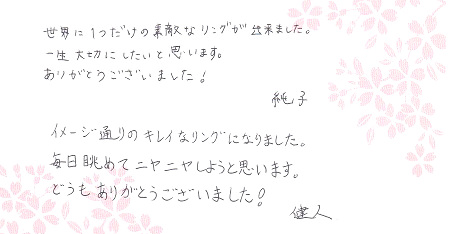 世界に1つだけの素敵なリングが出来ました。
一生大切にしたいと思います。
ありがとうございました!
純子
イメージ通りのキレイなリングになりました。
毎日眺めてニヤニヤしようと思います。
どうもありがとうございました!
健人